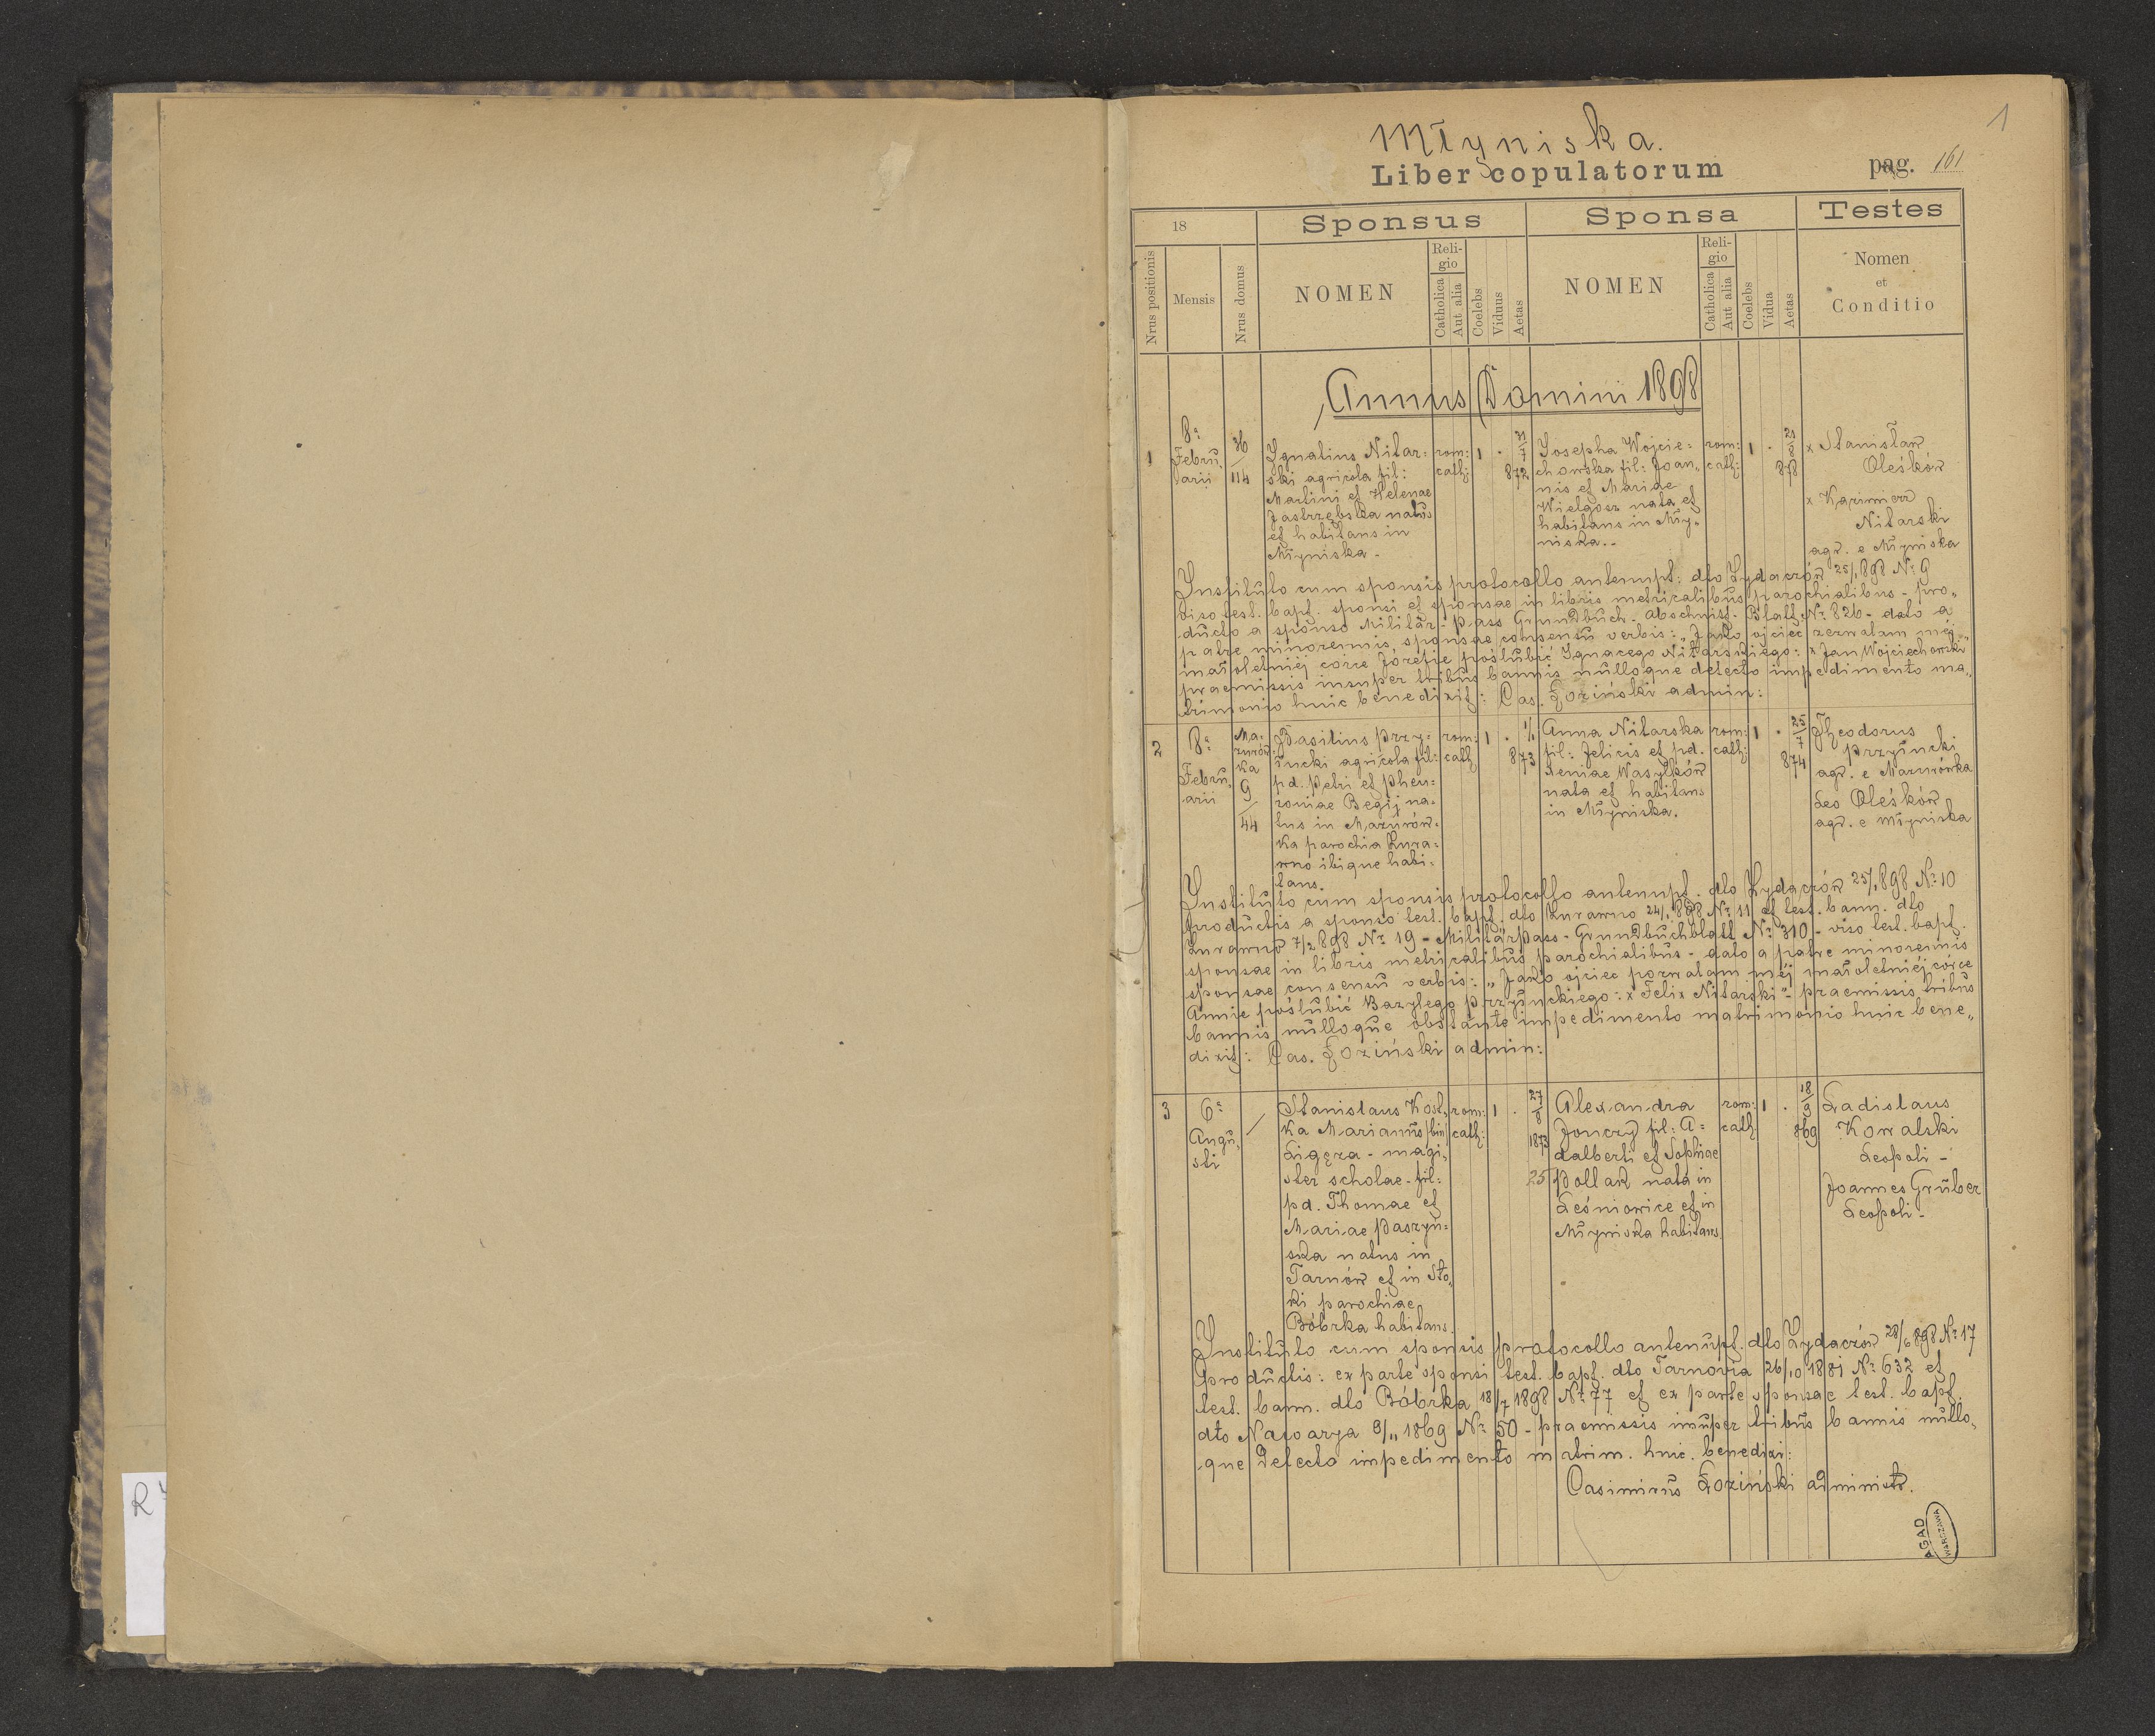 1
Młyniska.
Liber copulatorum
pag. 161
18
Sponsus
Sponsa
Testes
Nrus positionis
Mensis
Nrus domus
NOMEN
Reli-
gio
Catholica
Aut alia
Coelebs
Viduus
Aetas
NOMEN
Reli-
gio
Catholica
Aut alia
Coelebs
Vidua
Aetas
Nomen
et
Conditio
Annus Domini 1898
1
8a
Febru,
arii
36
114
Ignatius Nitar=
ski agricola fil:
Martini et Helenae
Jastrzębska natus
et habitans in
Młyniska -
rom:
cath:
1
.
31
7
872
Josepha Wojcie=
chowska fil: Joan,,
nis et Mariae
Wielgosz nata et
habitans in Mły,,
niska..
rom:
cath:
1
.
878
x Stanisław
Oleśków
x Kazimierz
Nitarski
agr. e Młyniska
Instituto cum sponsis protocollo antenupt: dto Żydaczów 25/1 898 No 9
viso test. bapt. sponsi et sponsae in libris metricalibus parochialibus - pro,,
ducto a sponso Militär-Pass Grundbuch. Abschnitt-Blatt: No 826 - dato a
patre minorennis, sponsae consensu verbis: „Jako ojciec zezwalam mej
małoletniej córce Józefie poślubić Ignacego Nitarskiego: x Jan Wojciechowski"
praemissis insuper tribus bannis nulloque detecto impedimento ma,,
trimonio huic benedixit: Cas. Łoziński admin:
2
8a
Febru,
arii
Ma=
zurów=
ka
9
44
Basilius Przy=
łucki agricola fil:
pd. Petri et Pheu=
roniae Begij na=
tus in Mazurów=
ka parochia Żura=
wno ibique habi=
tans.
rom:
cath
1
.
1/1
873
Anna Nitarska
fil: Felicis et pd.
Xeniae Wasylków
nata et habitans
in Młyniska.
rom:
cath:
1
.
25
7
874
Theodorus
Przyłucki
agr. e Mazurówka
Leo Oleśków
agr. e Młyniska
Instituto cum sponsis protocollo antenupt. dto Żydaczów 25/1 898 No 10
productis a sponso test. bapt. dto Żurawno 24/1 898 No 11 et test. bann. dto
Żurawno 7/2 898 No 19 - Militärpass - Grundbuchblatt No 310 - viso test. bapt.
sponsae in libris metricalibus parochialibus - dato a patre minorennis
sponsae consensu verbis: „Jako ojciec pozwalam mej małoletniej córce
Annie poślubić Bazylego Przyłuckiego: x Felix Nitarski" - praemissis tribus
bannis nulloque obstante impedimento matrimonio huic bene,,
dixit: Cas. Łoziński admin:
3
6a
Augu,
sti
Stanislaus Kost,
ka Marianus /bin/
Ligęza - magi,
ster scholae - fil:
pd. Thomae et
Mariae Paszyń=
ska natus in
Tarnów et in Sto,
ki parochiae
Bóbrka habitans.
rom:
cath:
1
.
27
8
1873
25
Alexandra
Jonczy fil: A=
dalberti et Sophiae
Pollak nata in
Leśniowice et in
Młyniska habitans
rom:
cath
1
.
18
9
869
Ladislaus
Kowalski
Leopoli -
Joannes Gruber
Leopoli -
Instituto cum sponsis protocollo antenupt. dto Żydaczów 28/6 898 No 17
Productis: ex parte sponsi test. bapt. dto Tarnovia 26/10 1881 No 632 et
test. bann. dto Bóbrka 18/7 1898 No 77 et ex parte sponsae test. bapt.
dto Nawarya 9/11 1869 No 50 - praemissis insuper tribus bannis nullo,
que detecto impedimento matrim. huic. benedixi:
Casimirus Łoziński administr.
AGAD
WARSZAWA
R